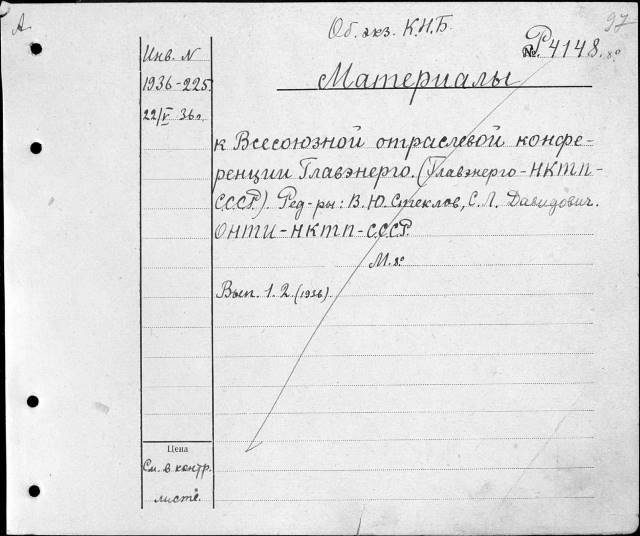 А
Об. экз. К.И.Б.
97
№. Р4148. 8°
Инв. N
1936-225.
22/V 36г.
Материалы
к Всесоюзной отраслевой конфе-
ренции Главэнерго. (Главэнерго-НКТП-
С.С.С.Р.). Ред-ры: В.Ю. Стеклов, С.Л. Давидович.
ОНТИ-НКТП-С.С.С.Р.
М. 8°
Вып. 1. 2. (1936).
Цена
См. в контр.
листе.